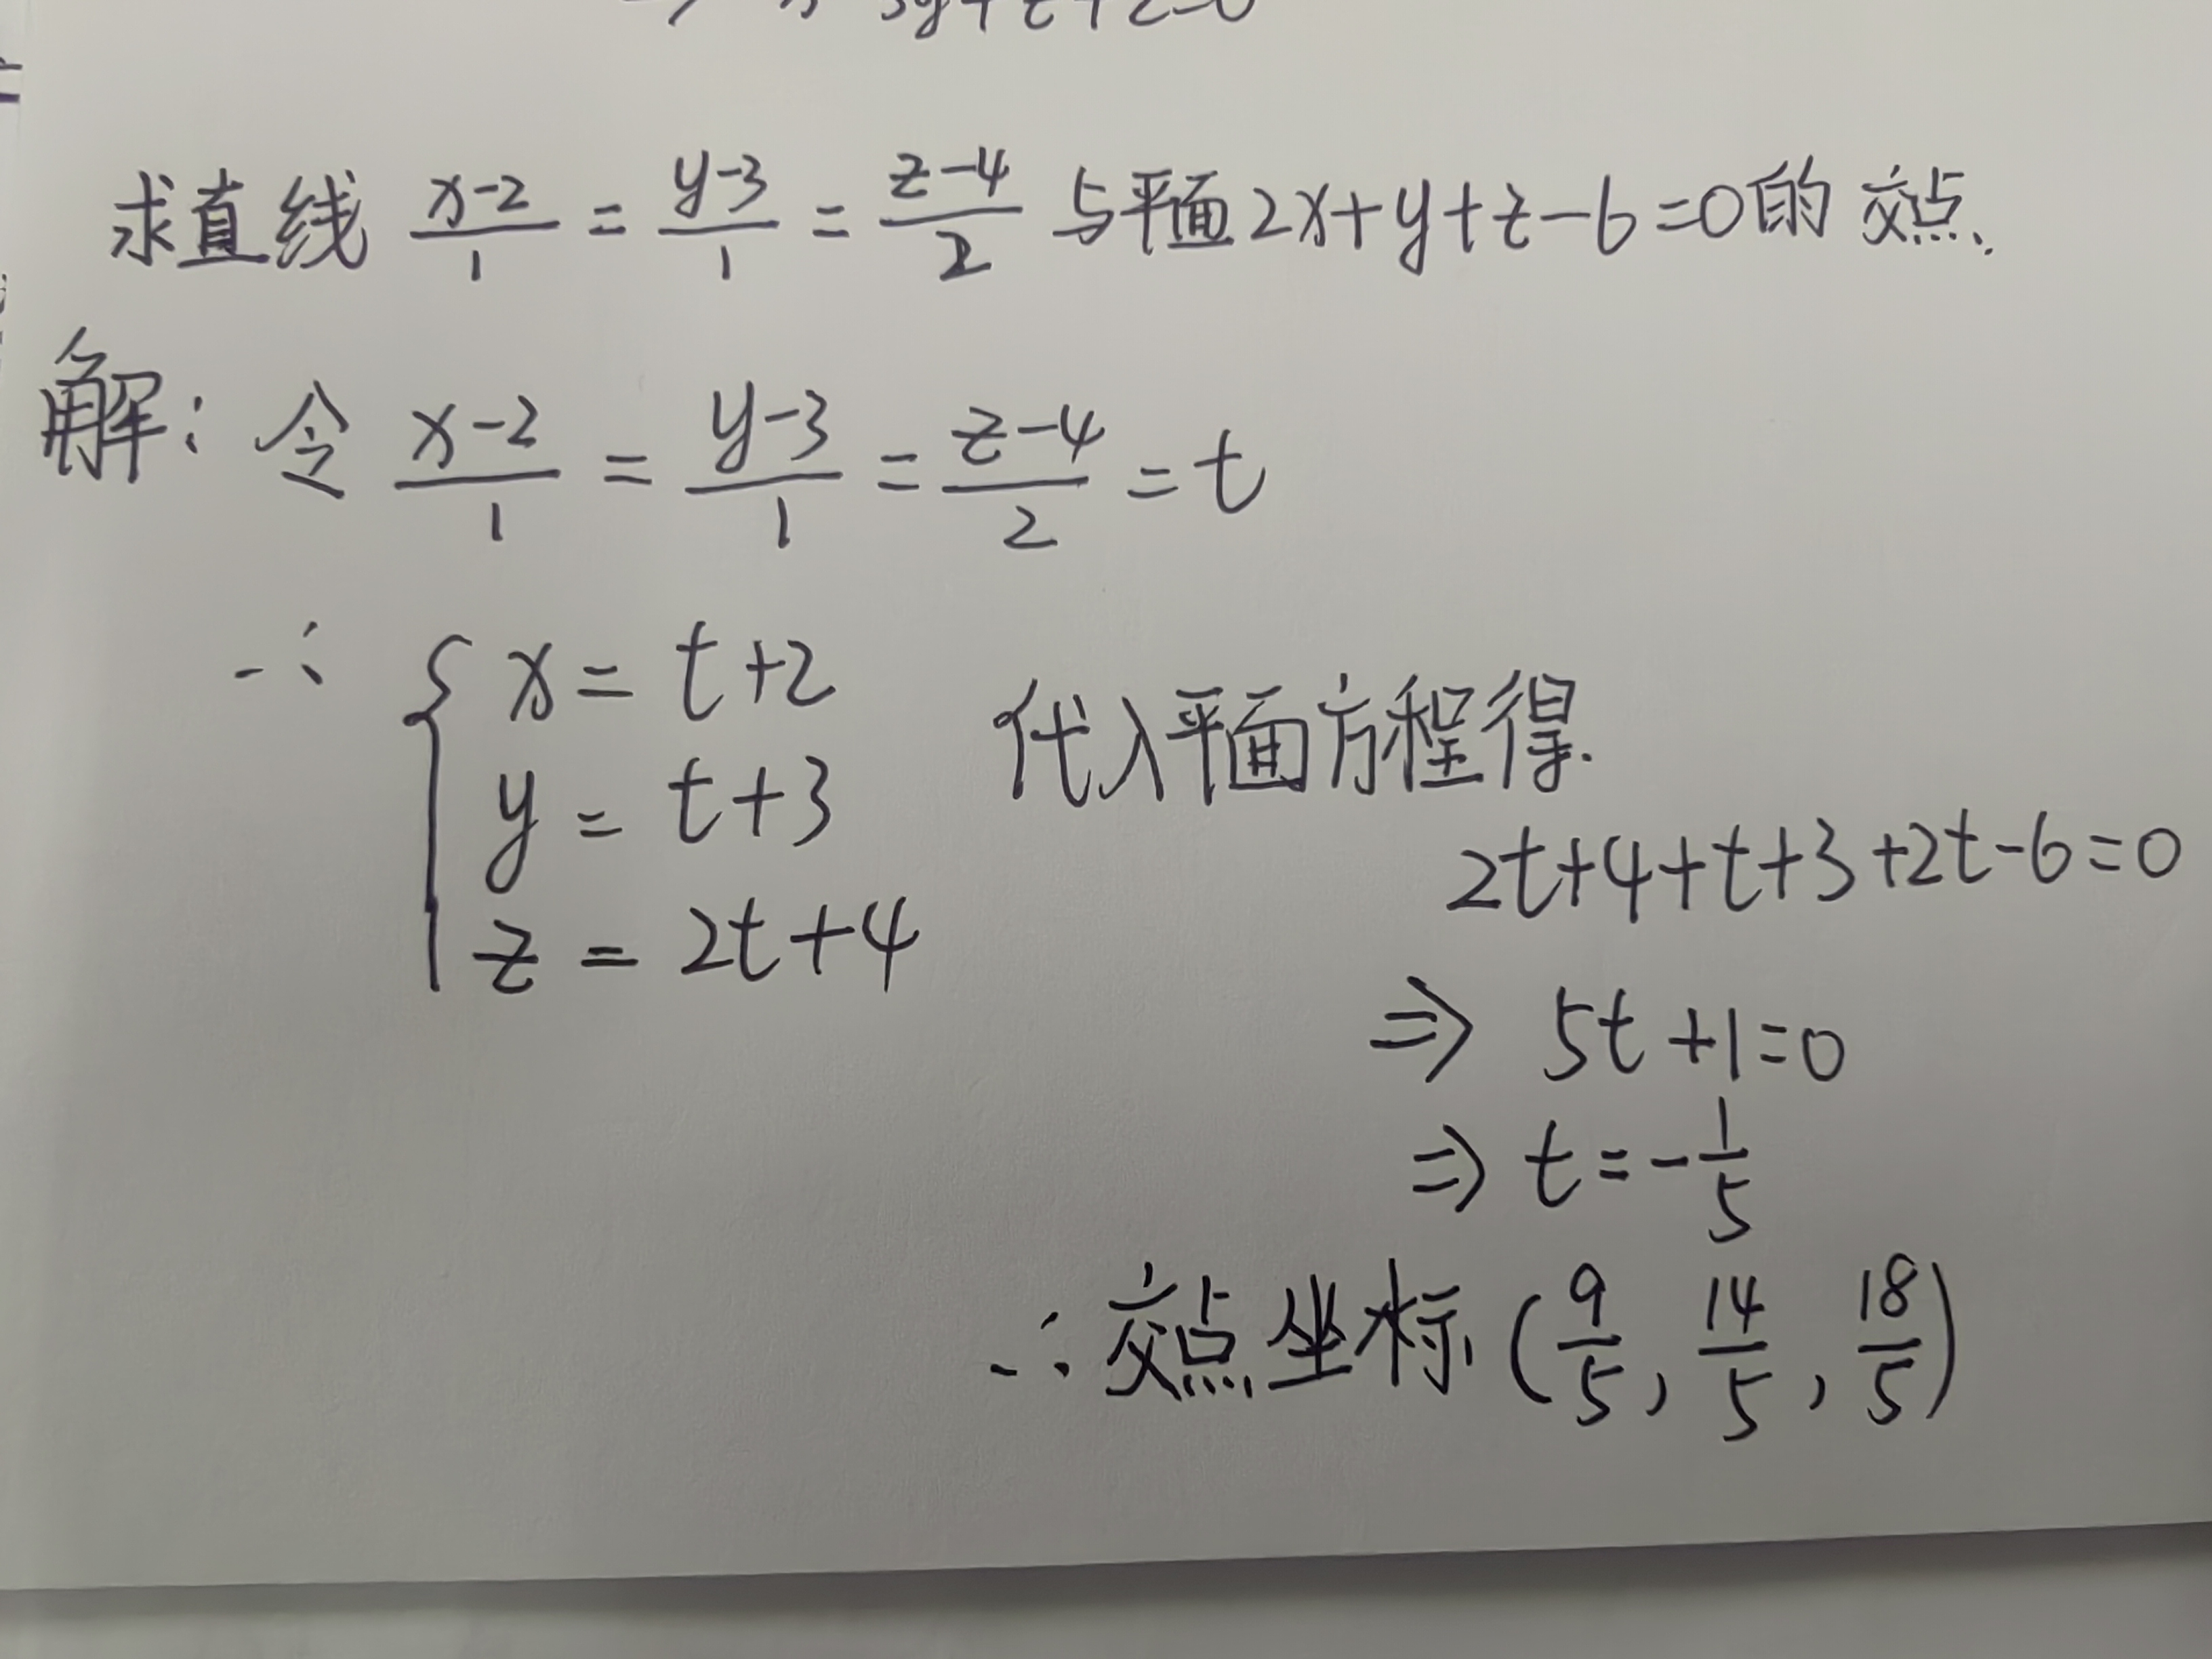 求直线 \frac{x-2}{1} = \frac{y-3}{1} = \frac{z-4}{2} 与平面 2x+y+z-6=0 的交点.
解: 令 \frac{x-2}{1} = \frac{y-3}{1} = \frac{z-4}{2} = t
∴ { x = t+2
y = t+3
z = 2t+4
代入平面方程得.
2t+4+t+3+2t-6=0
⇒ 5t+1=0
⇒ t=-\frac{1}{5}
∴ 交点坐标 (\frac{9}{5}, \frac{14}{5}, \frac{18}{5})